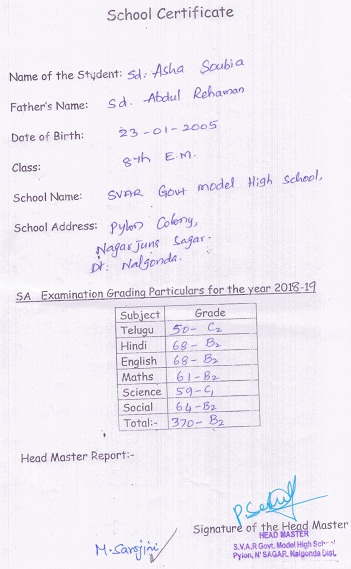 School Certificate
Name of the Student: Sd. Asha Soubia
Father's Name: Sd. Abdul Rehaman
Date of Birth: 23-01-2005
Class: 8th E.M.
School Name: SVAR Govt model High School,
School Address: Pylon Colony,
Nagarjuna Sagar.
Dt: Nalgonda.
SA Examination Grading Particulars for the year 2018-19
Subject Grade
Telugu 50- C2
Hindi 68- B2
English 68- B2
Maths 61-B2
Science 59-C1
Social 64-B2
Total:- 370- B2
Head Master Report:-
Signature of the Head Master
HEAD MASTER
S.V.A.R Govt. Model High School
Pylon, N' SAGAR. Nalgonda Dist.
M. Sarojini